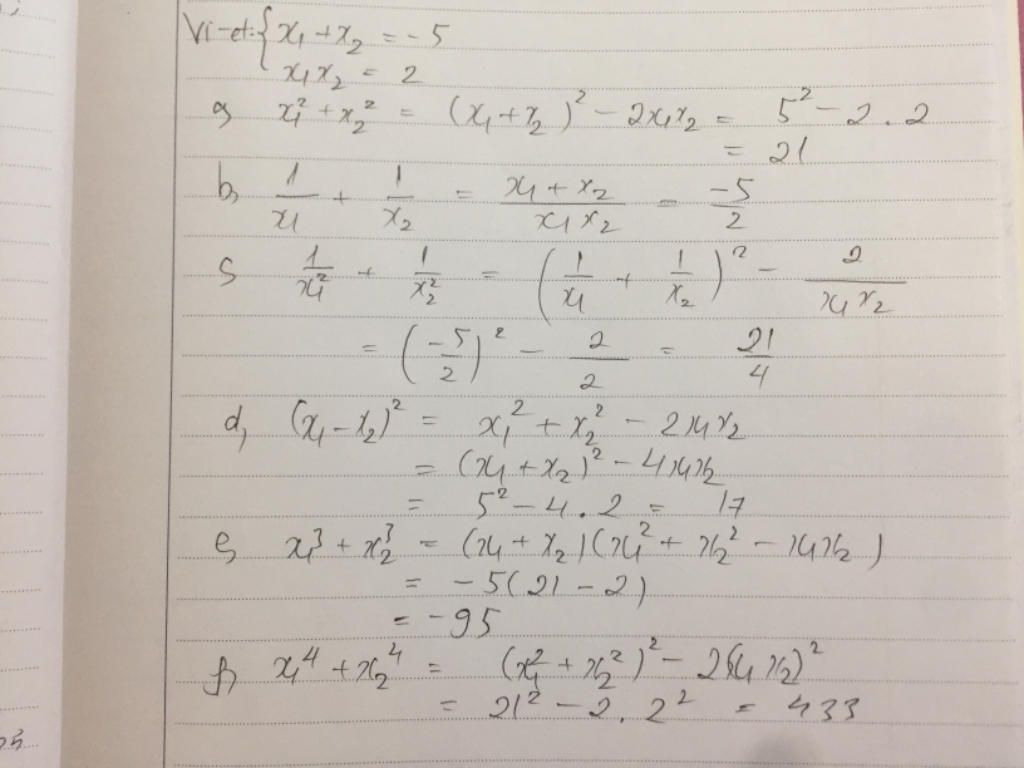 Vi-et: { x₁ + x₂ = -5
x₁x₂ = 2
a, x₁² + x₂² = (x₁ + x₂)² - 2x₁x₂ = 5² - 2 . 2
= 21
b, 1/x₁ + 1/x₂ = (x₁ + x₂)/(x₁x₂) = -5/2
c, 1/x₁² + 1/x₂² = (1/x₁ + 1/x₂)² - 2/(x₁x₂)
= (-5/2)² - 2/2 = 21/4
d, (x₁ - x₂)² = x₁² + x₂² - 2x₁x₂
= (x₁ + x₂)² - 4x₁x₂
= 5² - 4 . 2 = 17
e, x₁³ + x₂³ = (x₁ + x₂)(x₁² + x₂² - x₁x₂)
= -5(21 - 2)
= -95
f, x₁⁴ + x₂⁴ = (x₁² + x₂²)² - 2(x₁x₂)²
= 21² - 2 . 2² = 433